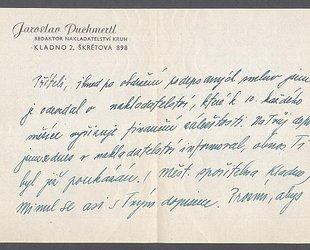 Jaroslav Puchmertl
REDAKTOR NAKLADATELSTVÍ KRUH
KLADNO 2, ŠKRÉTOVA 898
Příteli, ihned po obdržení podepsaných smluv jsem
je odevzdal v nakladatelství, které k 10. každého
měsíce vyřizuje finanční záležitosti. Na Tvůj dopis
jsem v nakladatelství informoval, obnos Ti
byl již poukázán. (Měst. spořitelna Kladno)
Minul se asi s Tvým dopisem. Prosím, abys